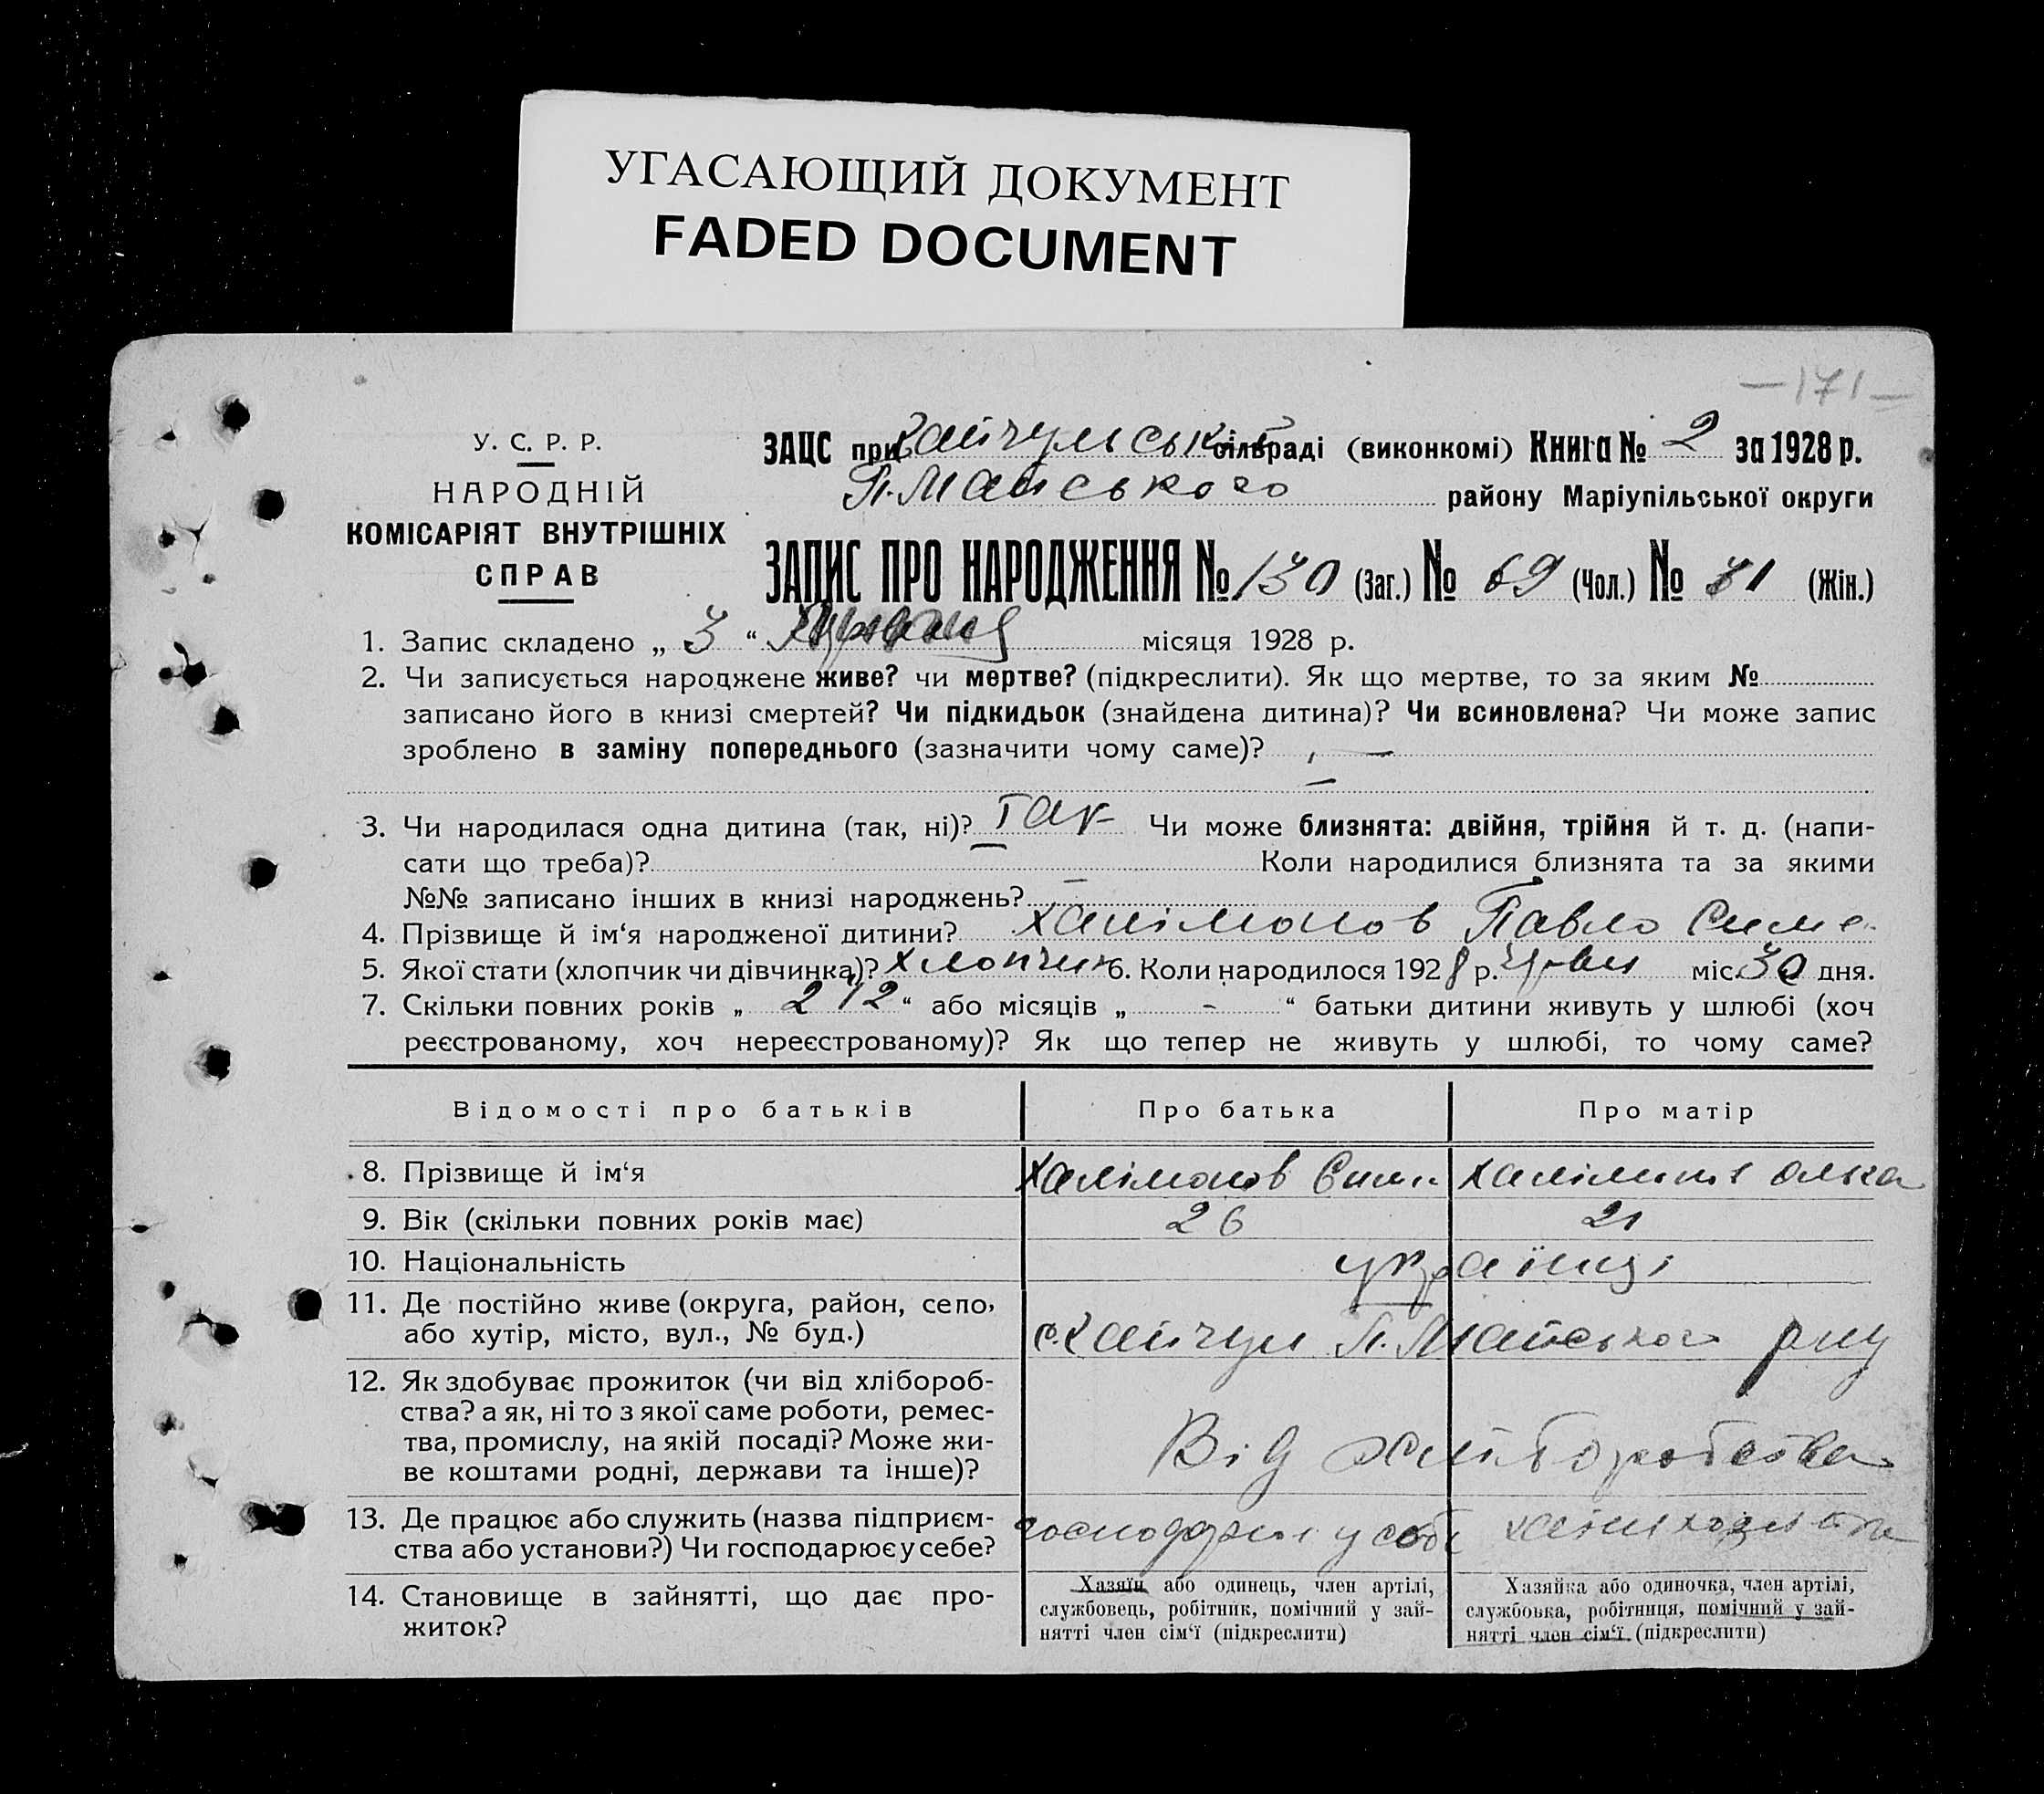 УГАСАЮЩИЙ ДОКУМЕНТ
FADED DOCUMENT
—171—
У. С. Р. Р.
НАРОДНІЙ
КОМІСАРІЯТ ВНУТРІШНІХ
СПРАВ
ЗАЦС при Хайчульській сільраді (виконкомі) Книга № 2 за 1928 р.
П. Майського району Маріупільської округи
ЗАПИС ПРО НАРОДЖЕННЯ № 130 (Заг.) № 69 (Чол.) № 31 (Жін.)
1. Запис складено „ 3 “ місяця 1928 р.
2. Чи записується народжене живе? чи мертве? (підкреслити). Як що мертве, то за яким №
записано його в книзі смертей? Чи підкидьок (знайдена дитина)? Чи всиновлена? Чи може запис
зроблено в заміну попереднього (зазначити чому саме)? —
3. Чи народилася одна дитина (так, ні)? Так Чи може близнята: двійня, трійня й т. д. (напи-
сати що треба)? Коли народилися близнята та за якими
№№ записано інших в книзі народжень? —
4. Прізвище й ім‘я народженої дитини? Халімонов Павло Симе
5. Якої стати (хлопчик чи дівчинка)? Хлопчик 6. Коли народилося 1928 р. червн міс. 30 дня.
7. Скільки повних років „ 2 1/2 “ або місяців „ - “ батьки дитини живуть у шлюбі (хоч
реєстрованому, хоч нереєстрованому)? Як що тепер не живуть у шлюбі, то чому саме?
Відомості про батьків Про батька Про матір
8. Прізвище й ім‘я Халімонов Симн Халімонов Ольга
9. Вік (скільки повних років має) 26 21
10. Національність українці
11. Де постійно живе (округа, район, село,
або хутір, місто, вул., № буд.) с. Хайчул П. Майського рну
12. Як здобуває прожиток (чи від хлібороб-
ства? а як, ні то з якої саме роботи, ремес-
тва, промислу, на якій посаді? Може жи-
ве коштами родні, держави та інше)? Від хліборобства
13. Де працює або служить (назва підприєм-
ства або установи?) Чи господарює у себе? у себе
14. Становище в зайнятті, що дає про-
житок?
Хазяїн або одинець, член артілі,
службовець, робітник, помічний у зай-
нятті член сім‘ї (підкреслити)
Хазяйка або одиночка, член артілі,
службовка, робітниця, помічний у зай-
нятті член сім‘ї (підкреслити)